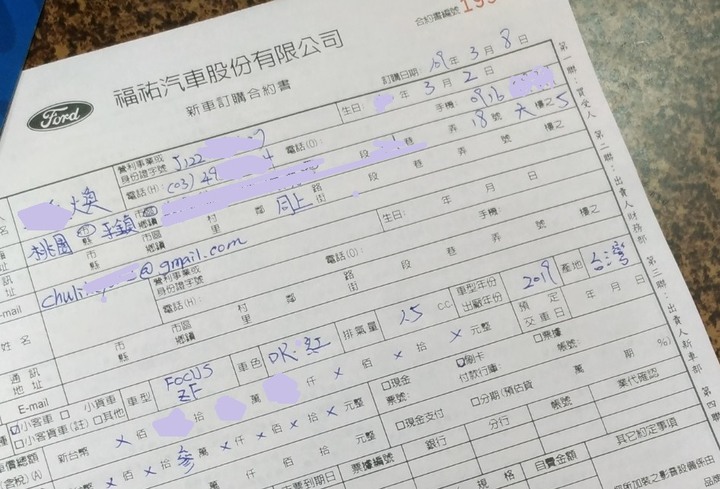 合約書編號 199
福祐汽車股份有限公司
Ford
新車訂購合約書
訂購日期: 109 年 3 月 8 日
營利事業或
身份證字號 J122
電話(O):
生日: 年 3 月 2 日
手機: 0916
煥
電話(H): (03) 49 4
桃園 市 縣 平鎮 市區 鄉鎮
段 巷 弄 18 號 六 樓之 5
市 縣 市區 鄉鎮 村 里 鄰 同上 路 街 段 巷 弄 號 樓之
@gmail.com
營利事業或
身份證字號
電話(O):
生日: 年 月 日
姓名
電話(H):
手機:
通訊
地址
市 縣 市區 鄉鎮 村 里 鄰 路 街 段 巷 弄 號 樓之
E-mail
小客車 小貨車
小客車(註) 其他
車型 FOCUS ZF
車色 DK.紅
排氣量 1.5 CC
車型年份
出廠年份 2019
產地 台灣
預定
交車日 年 月 日
新台幣 X 佰 拾 萬 仟 X 佰 X 拾 X 元整
現金 刷卡 票據
票號: 付款行庫: 帳號:
X 佰 X 拾 參 萬 X 仟 X 佰 X 拾 X 元整
現金支付 分期(預估貸 萬 期 %)
萬 仟 佰 拾 元整
銀行 分行 帳號 業代確認
票據編號
規格 自費金額 其它約定事項
第一聯:買受人 第二聯:出賣人財務部 第三聯:出賣人新車部 第四